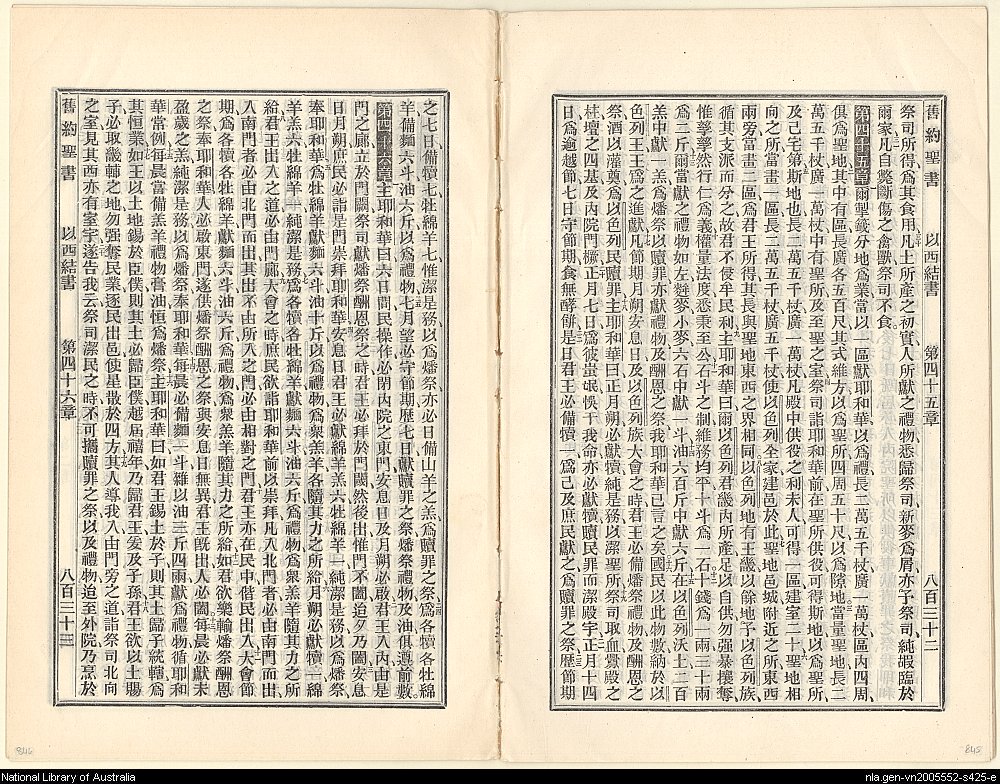 舊約聖書 以西結書 第四十五章 八百三十二
祭司所得爲其食用凡土所產之初實人所獻之禮物悉歸祭司新麥爲屑亦予祭司純嘏臨於
爾家凡自斃斷傷之禽獸祭司不食
第四十五章爾掣籤分地爲業當以一區獻耶和華以爲禮長二萬五千杖廣一萬杖區內四周
俱爲聖地其中有區長廣各五百尺其式維方以爲聖所四周五十尺以爲隙地當量聖地長二
萬五千杖廣一萬杖中有聖所及至聖之室祭司詣耶和華前在聖所供役可得斯地以爲聖所
及己宅第斯地也長二萬五千杖廣一萬杖凡殿中供役之利未人可得一區建室二十聖地相
向之所當畫一區長二萬五千杖廣五千杖使以色列全家建邑於此聖地邑城附近之所東西
兩旁當畫二區爲君王所得其長與聖地東西之界相同以色列地有王畿以餘地予以色列族
循其支派而分之故君不侵牟民利主耶和華曰爾以色列君畿內所產足以自供勿強暴攘奪
惟孳孳然行仁爲義權量法度悉秉至公石斗之制維務均平十斗爲一石十錢爲一兩三十兩
爲二斤爾當獻之禮物如左麰麥小麥六石中獻一斗油六百斤中獻六斤在以色列沃土二百
羔中獻一羔爲燔祭以贖罪亦獻禮物及酬恩之祭我耶和華已言之矣國民以此物數納於以
色列王王爲之進獻凡節期月朔安息日及以色列族大會之時君王必備燔祭禮物及酬恩之
祭酒以灌奠爲以色列民贖罪主耶和華曰正月朔必獻犢純是務以潔聖所祭司取血釁殿之
柱壇之四基及內院門橛正月七日爲彼蚩氓悞干我命亦必獻犢贖民罪而潔殿宇正月十四
日爲逾越節七日守節期食無酵餅是日君王必備犢一爲己及庶民獻之爲贖罪之祭歷節期
之七日備犢七牡綿羊七惟潔是務以爲燔祭亦必日備山羊之羔爲贖罪之祭爲各犢各牡綿
羊備麵六斗油六斤以爲禮物七月望必守節期歷七日獻贖罪之祭燔祭禮物及油俱遵前數
第四十六章主耶和華曰六日間民操作必閉內院之東門安息日及月朔必啟君王入內由是
門之廊立於門閾祭司獻燔祭酬恩祭之時君王必拜於門閾然後出惟門不闔迨夕乃闔安息
日月朔庶民必詣是門崇拜耶和華安息日君王必獻綿羊羔六牡綿羊一純潔是務以爲燔祭
奉耶和華爲牡綿羊獻麵六斗油十斤以爲禮物爲衆羔羊各隨其力之所給月朔必獻犢一綿
羊羔六牡綿羊一純潔是務爲各犢各牡綿羊獻麵六斗油六斤爲禮物爲衆羔羊隨其力之所
給君王出入之道必由門廊大會之時庶民欲詣耶和華前以崇拜凡入北門者必由南門而出
入南門者必由北門而出其出不由所入之門必由相對之門君王亦在民中偕民出入大會節
期爲各犢各牡綿羊獻麵六斗油六斤爲禮物爲衆羔羊隨其力之所給如君欲樂輸燔祭酬恩
之祭奉耶和華人必啟東門遂供燔祭酬恩之祭與安息日無異君王旣出人必闔每晨必獻未
盈歲之羔純潔是務以爲燔祭奉耶和華每晨必備麵一斗雜以油三斤四兩獻爲禮物循耶和
華常例每晨當備羔羊禮物膏油恒爲燔祭主耶和華曰如君王錫土於子則其土歸子統轄爲
其恒業如王以土地錫於臣僕則其土必歸臣僕越屆禧年乃歸君王爰及子孫君王欲以土賜
子必取畿輔之地勿强奪民業逐民出邑使星散於四方其人導我入由門旁之道詣祭司北向
之室見其西亦有室宇遂告我云祭司潔民之時不可攜贖罪之祭以及禮物迨至外院乃烹於
舊約聖書 以西結書 第四十六章 八百三十三
846
845
National Library of Australia
nla.gen-vn2005552-s425-e